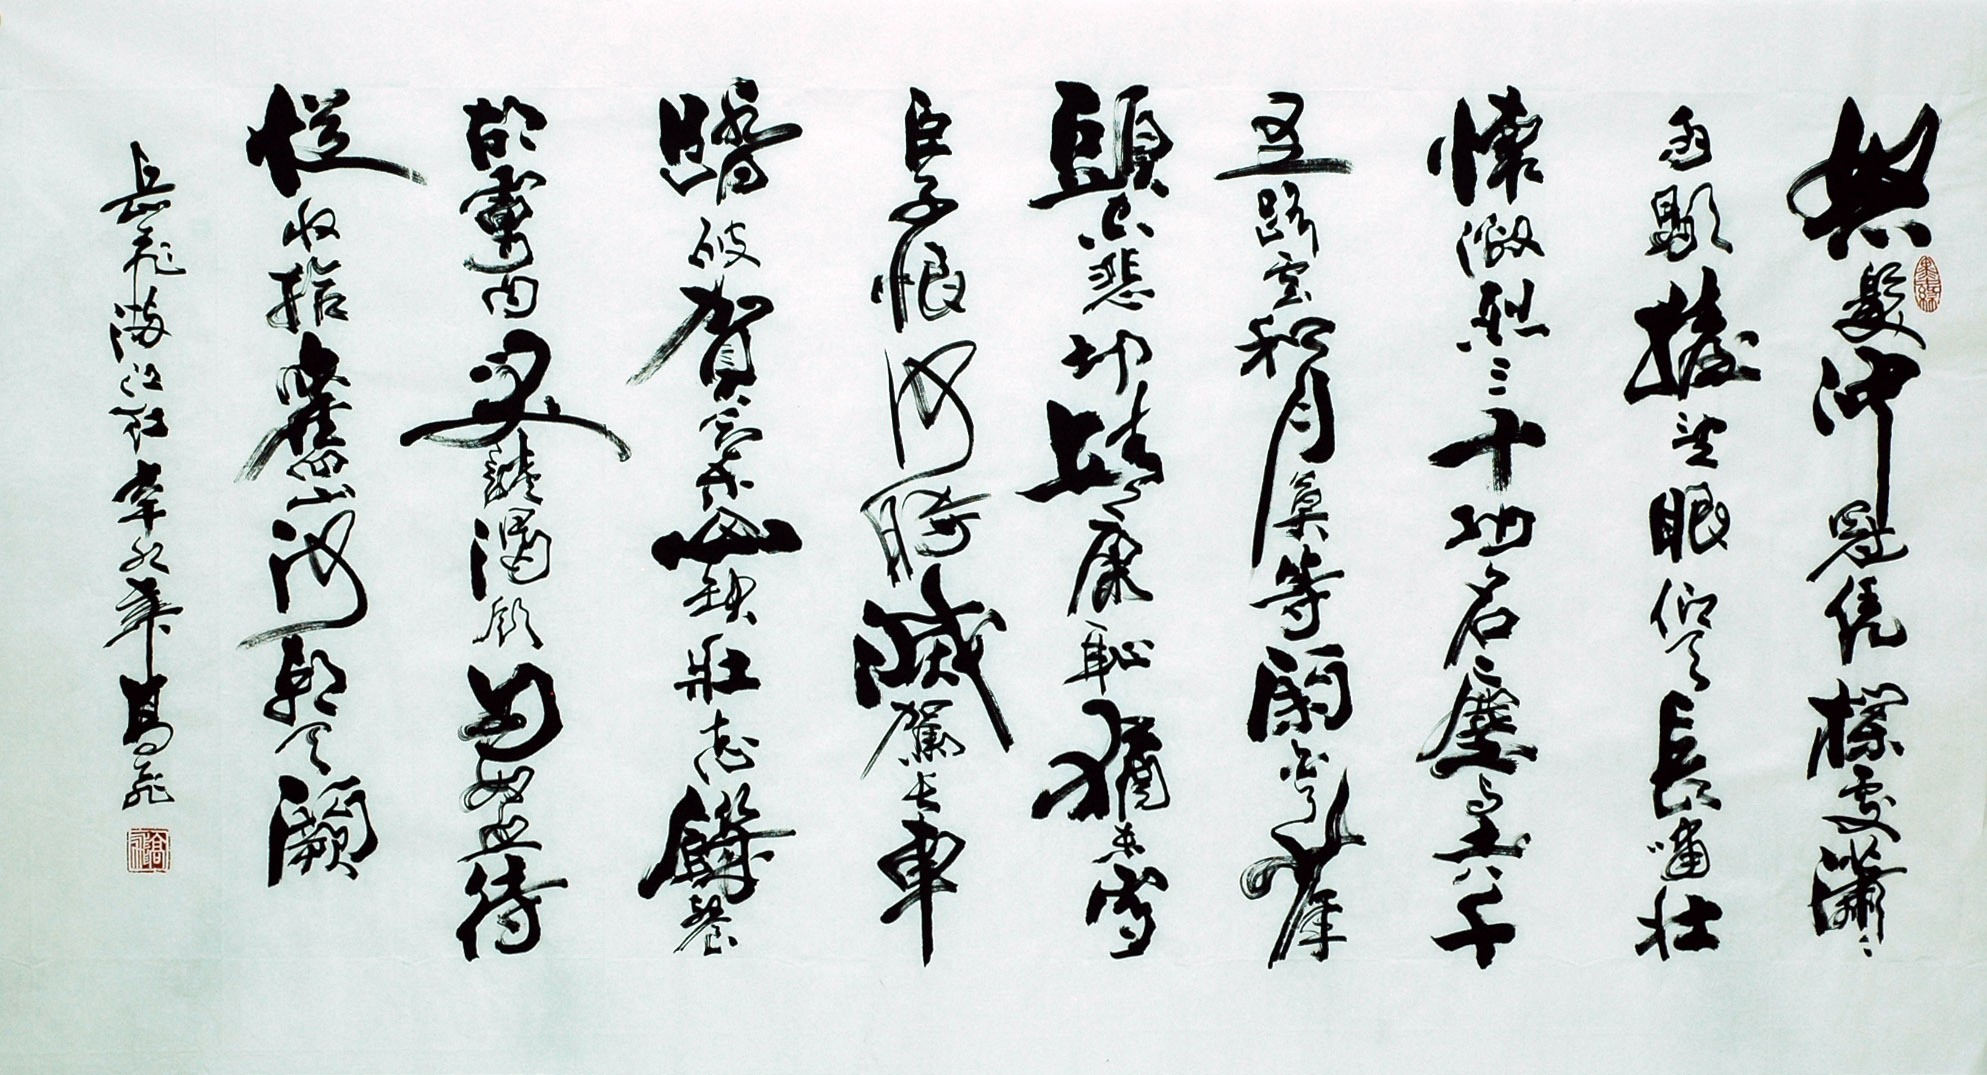 怒髮沖冠凭欄處瀟瀟
雨歇抬望眼仰天長嘯壯
懷激烈三十功名塵與土八千
里路雲和月莫等閑白了少年
頭空悲切靖康恥猶未雪
臣子恨何時滅駕長車
踏破賀蘭山缺壯志饑餐
胡虜肉笑談渴飲匈奴血待
從收拾舊山河朝天闕
岳飛滿江紅辛卯年高飛